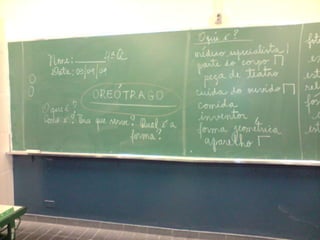 Nome: ________ 4ª C
Data: 03/09/09
OREÓTRAGO
O que é?
Como é? Pra que serve? Qual é a
forma?
O quê é?
médico especialista
parte do corpo
peça de teatro
cuida do ouvido
comida
inventor
forma geométrica
aparelho